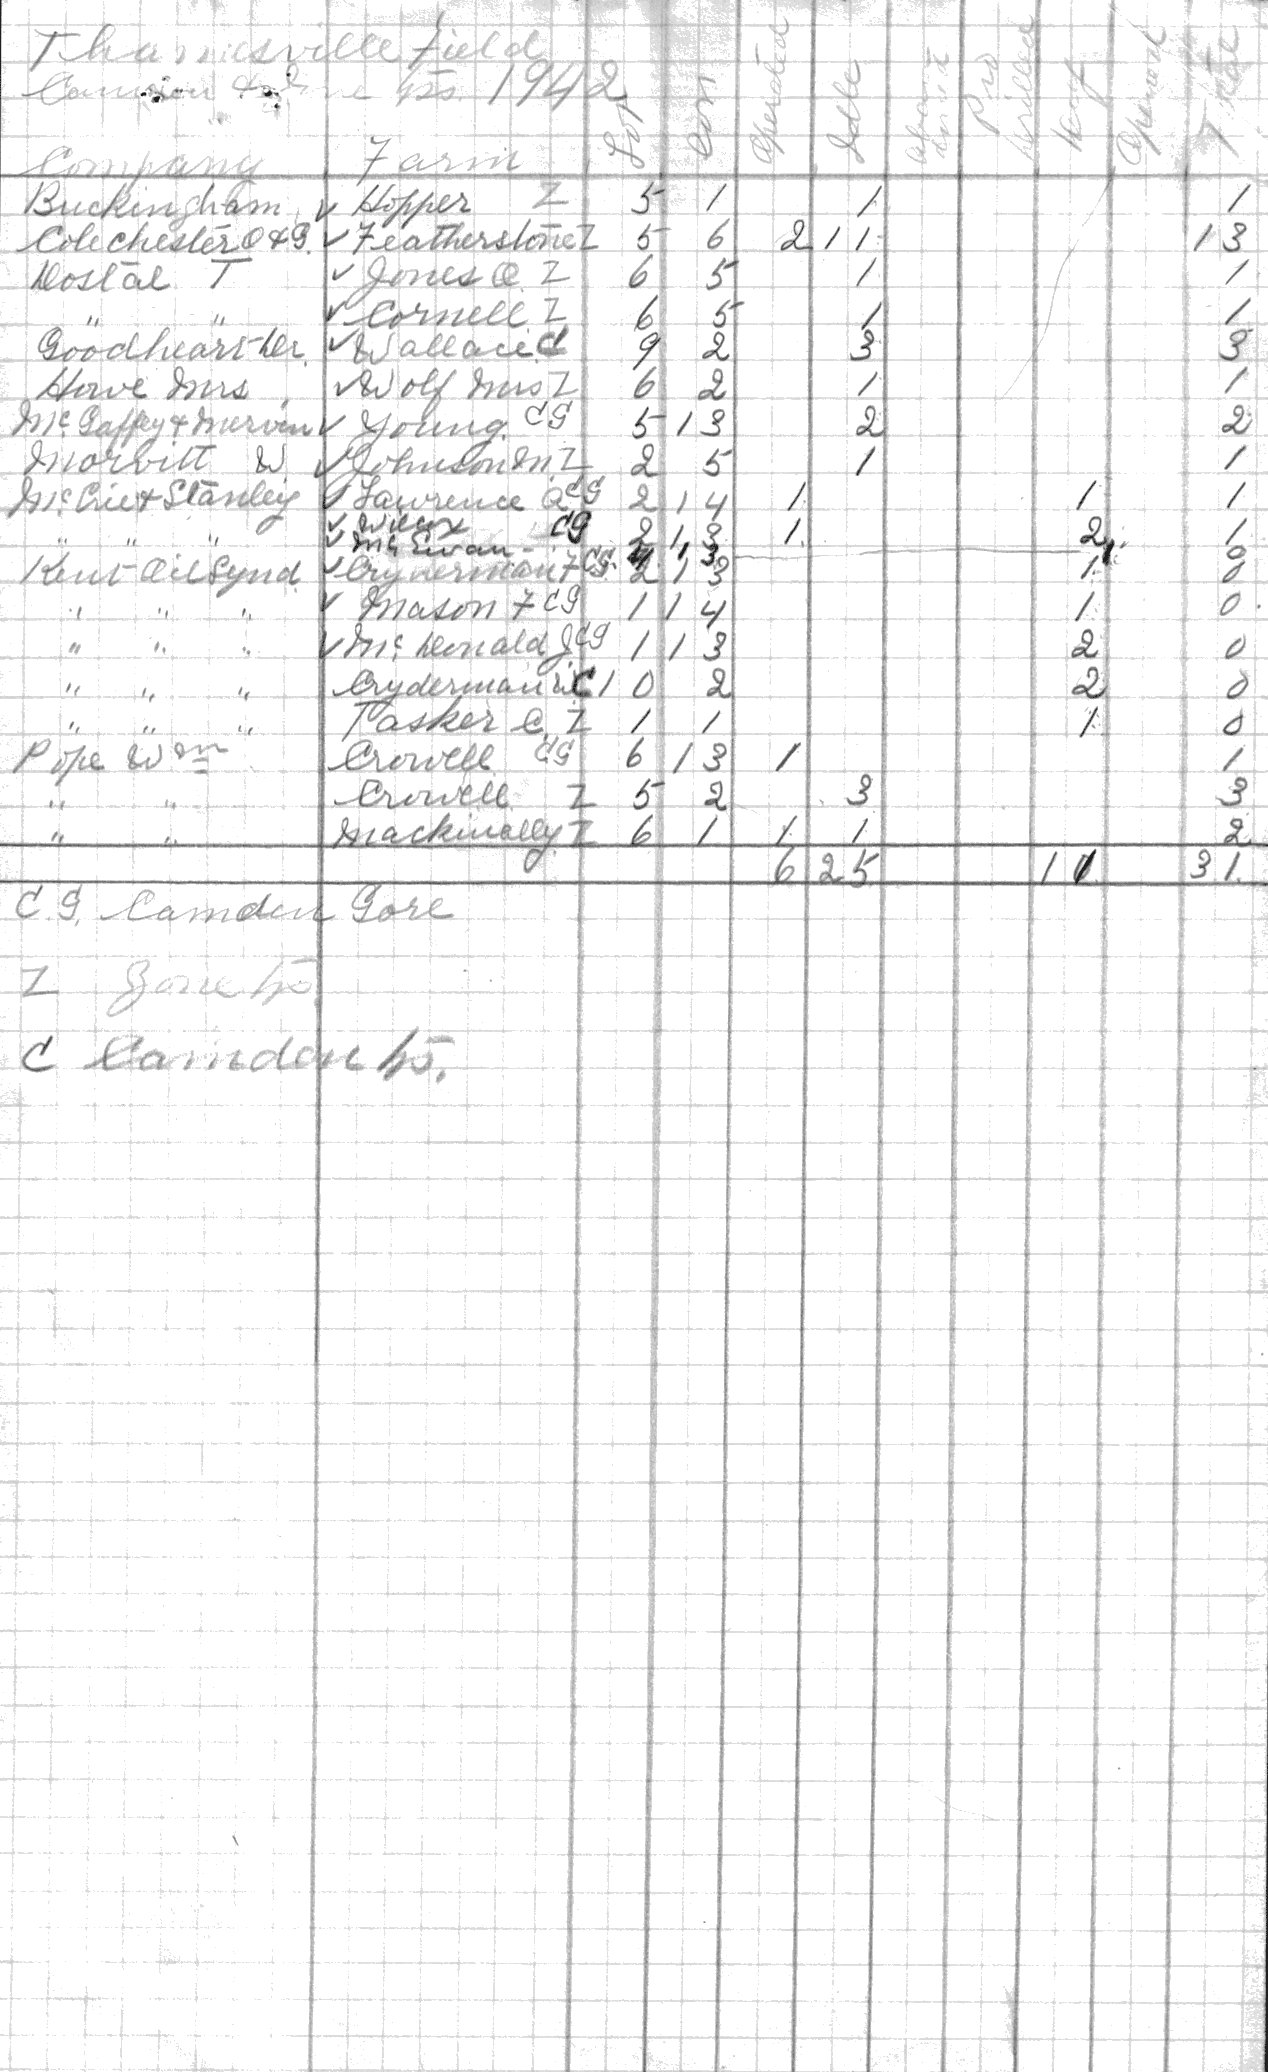 Thamesville Field
Camden & Zone Tps. 1942
Company Farm Lot Con Operated Idle Pro Drilled Total
Buckingham ✓ Hopper Z 5 1 1 1
Colechester O & G. ✓ Featherstone Z 5 6 2 11 13
Dostal T ✓ Jones O. Z 6 5 1 1
" " ✓ Cornell Z 6 5 1 1
Goodheart Dr. ✓ Wallace C 9 2 3 3
Howe Mrs ✓ Wolf Mrs Z 6 2 1 1
Mc.Gaffey & Mervin ✓ Young. CG 5 13 2 2
Morvitt W ✓ Johnson M. Z 2 5 1 1
Mc.Crie & Stanley ✓ Lawrence CG 2 14 1 1 1
" " " ✓ Wilcox CG 2 13 1 2 1
✓ Mc Ewan 13 1
Kent Oil Synd. ✓ Cryderman F CG. 2 13 1 0
" " " ✓ Mason F CG 1 14 1 0
" " " ✓ Mc.Donald J. CG 1 13 2 0
" " " Cryderman W C 10 2 2 0
" " " Tasker C. Z 1 1 1 0
Pope Wm Crowell CG 6 13 1 1
" " Crowell Z 5 2 3 3
" " Mackinally Z 6 1 1 1 2
6 25 11 31
C.G. Camden Gore
Z Zone Tp.
C Camden Tp.